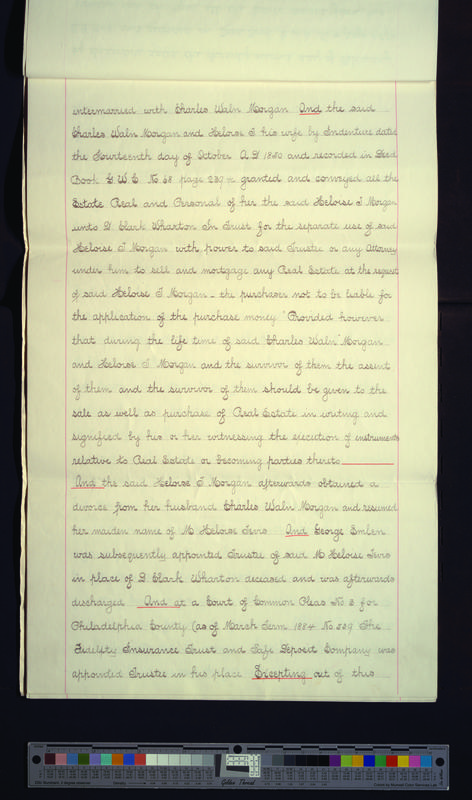 intermarried with Charles Waln Morgan And the said
Charles Waln Morgan and Heloise I his wife by Indenture dated
the Fourteenth day of October A D 1880 and recorded in Deed
Book G W E No 68 page 239 &c granted and conveyed all the
Estate Real and Personal of her the said Heloise I Morgan
unto D Clark Wharton In Trust for the separate use of said
Heloise I Morgan with power to said Trustee or any Attorney
under him to sell and mortgage any Real Estate at the request
of said Heloise I Morgan - the purchaser not to be liable for
the application of the purchase money "Provided however
that during the life time of said Charles Waln Morgan
and Heloise I Morgan and the survivor of them the assent
of them and the survivor of them should be given to the
sale as well as purchase of Real Estate in writing and
signified by his or her witnessing the execution of instruments
relative to Real Estate or becoming parties thereto
And the said Heloise I Morgan afterwards obtained a
divorce from her husband Charles Waln Morgan and resumed
her maiden name of M Heloise Ievrs And George Emlen
was subsequently appointed Trustee of said M Heloise Ievrs
in place of D Clark Wharton deceased and was afterwards
discharged And at a Court of Common Pleas No 3 for
Philadelphia County (as of March Term 1884 No 539 The
Fidelity Insurance Trust and Safe Deposit Company was
appointed Trustee in his place Excepting out of this